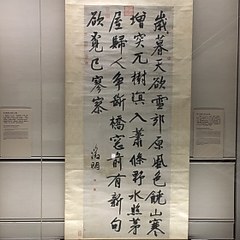 歲暮天欲雪郊原風色饒山寒
增突兀樹溟入蕭條野水照茅
屋歸人爭斷橋窓前有新句
欲覓已寥寥
徵明